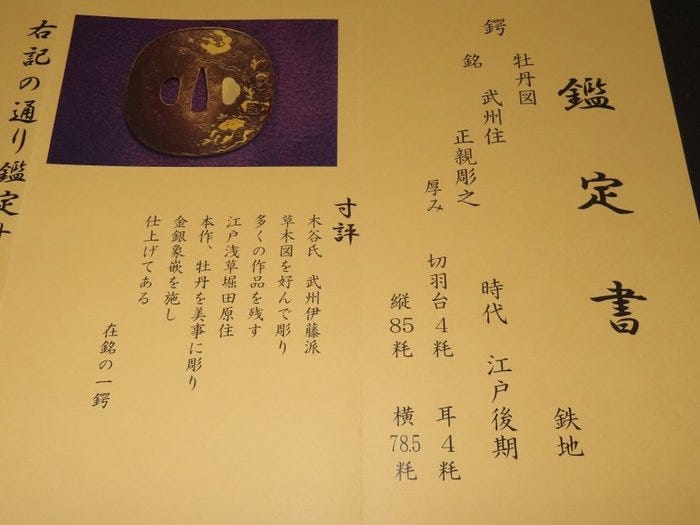 鑑定書
鉄地
鍔 牡丹図
銘 武州住
正親彫之
時代 江戸後期
厚み 切羽台4粍 耳4粍
縦85粍 横78.5粍
寸評
木谷氏 武州伊藤派
草木図を好んで彫り
多くの作品を残す
江戸浅草堀田原住
本作、牡丹を美事に彫り
金銀象嵌を施し
仕上げてある
在銘の一鍔
右記の通り鑑定